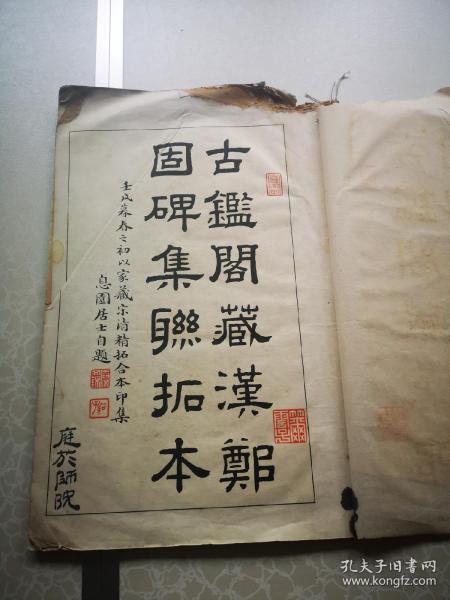 古鑑閣藏漢鄭
固碑集聯拓本
壬戌暮春之初以家藏宋清精拓合本印集
息園居士自題
庭於師院
孔夫子旧书网
www.kongfz.com